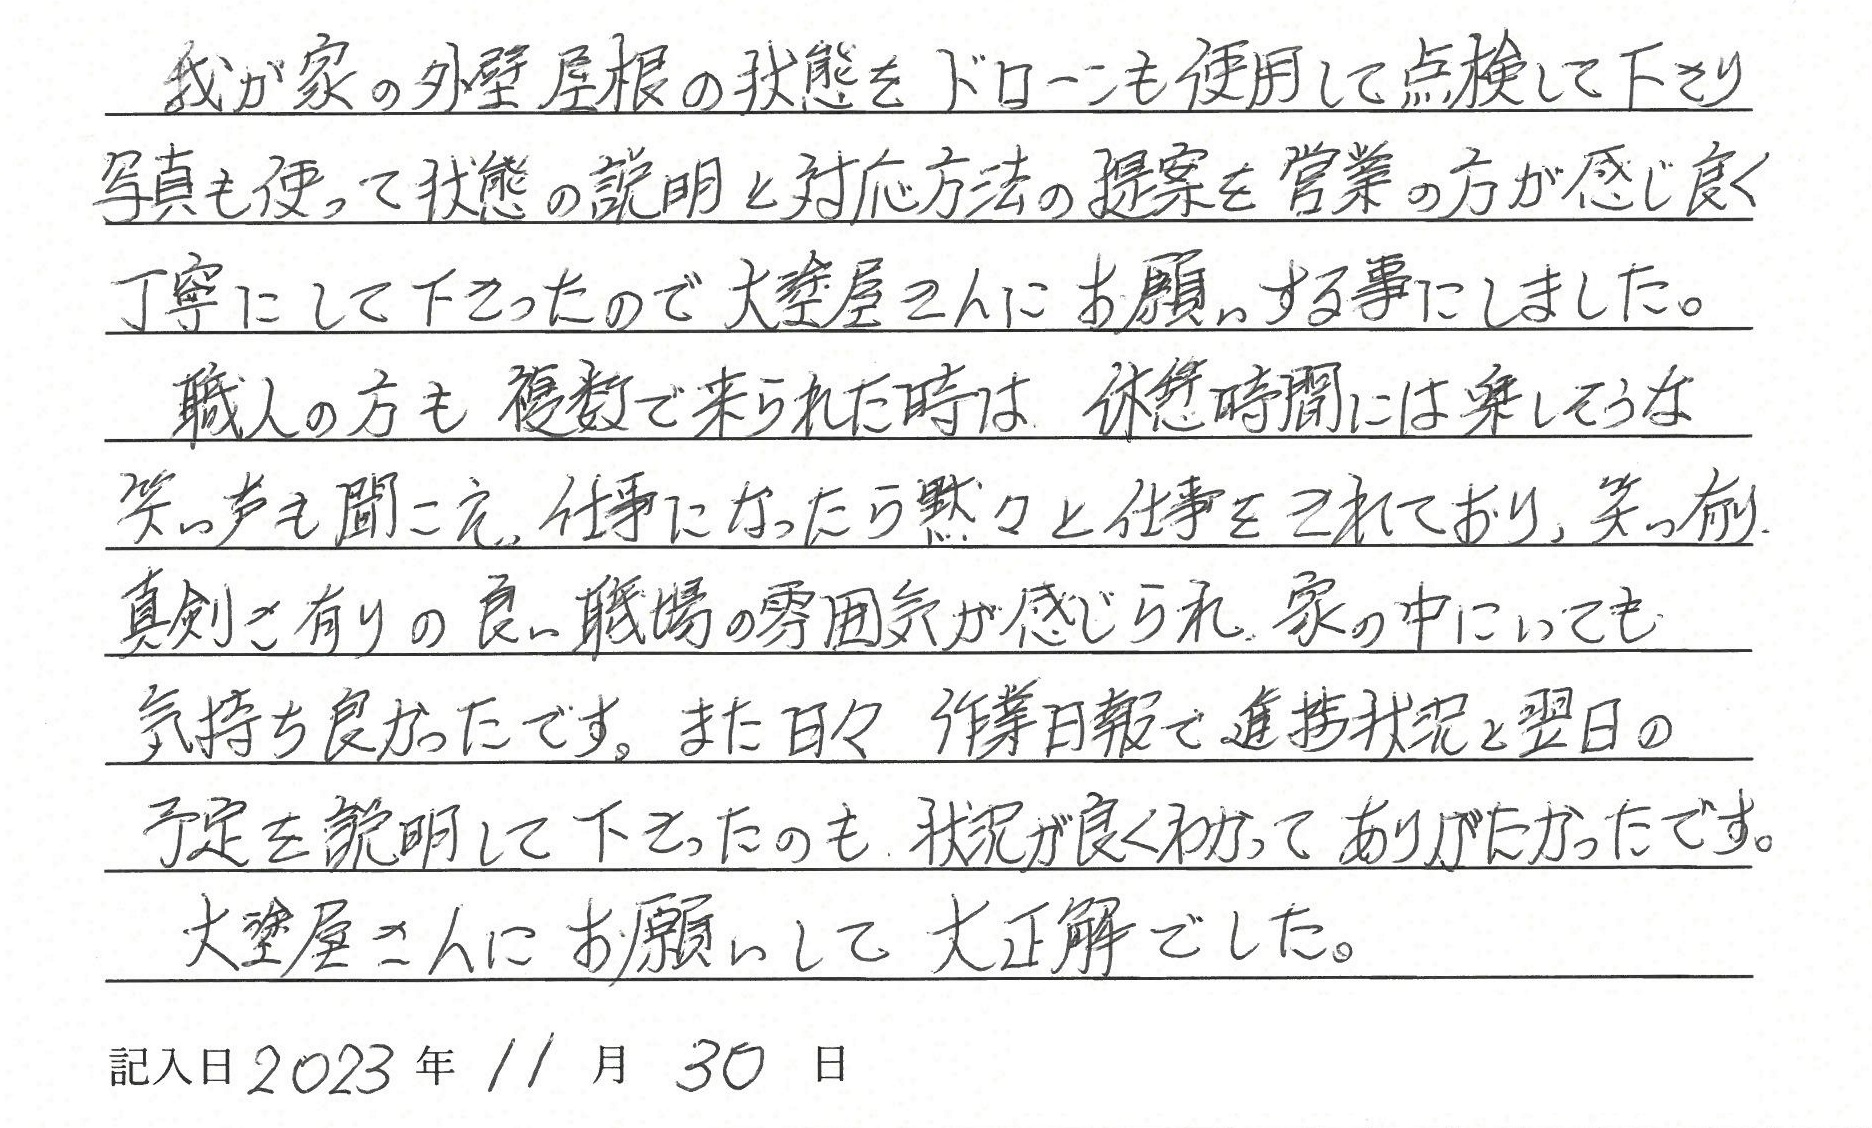 我が家の外壁屋根の状態をドローンも使用して点検して下さり
写真も使って状態の説明と対応方法の提案を営業の方が感じ良く
丁寧にして下さったので大塗屋さんにお願いする事にしました。
職人の方も複数で来られた時は、休憩時間には楽しそうな
笑い声も聞こえ、仕事になったら黙々と仕事をされており、笑い有り、
真剣さ有りの良い職場の雰囲気が感じられ、家の中にいても
気持ち良かったです。また日々作業日報で進捗状況と翌日の
予定を説明して下さったのも、状況が良くわかってありがたかったです。
大塗屋さんにお願いして大正解でした。
記入日 2023 年 11 月 30 日